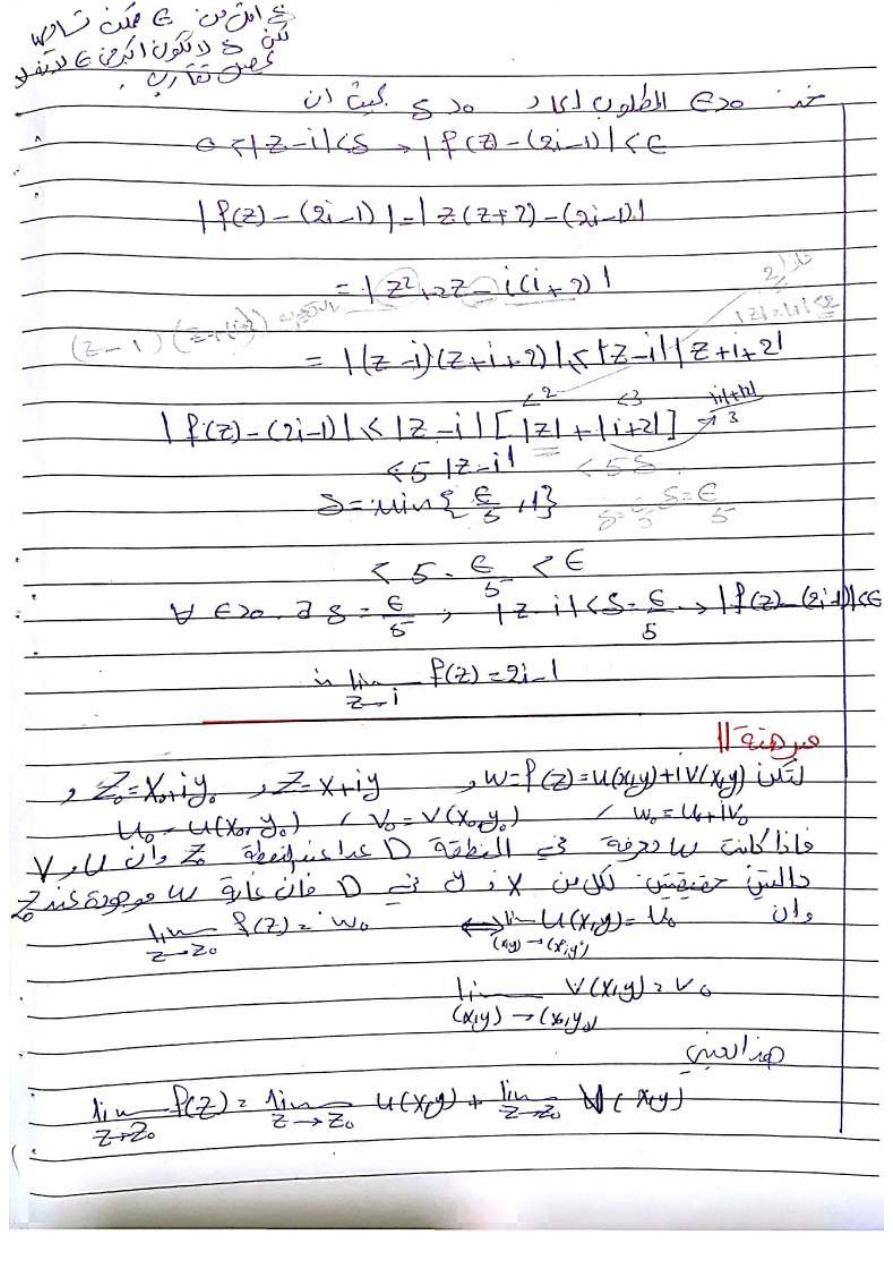 δ اقل من ∈ ممكن تساويها
لكن δ لا تكون اكبر من ∈
يحصل تقارب .
∈>0 المطلوب ايجاد δ>0 بحيث ان
0<|z-i|<δ → |f(z)-(2i-1)|<∈
|f(z)-(2i-1)|=|z(z+2)-(2i-1)|
=|z²+2z-i(i+2)|
= |(z-i)(z+i+2)|<|z-i||z+i+2|
<2 <3
|f(z)-(2i-1)|<|z-i|[|z|+|i+2|] → 3
<5|z-i| <5δ
δ=min{∈/5 ,1} δ=∈/5
<5.∈/5 <∈
∀ ∈>0. ∃ δ=∈/5 , |z-i|<δ=∈/5 → |f(z)-(2i-1)|<∈
∴ lim z→i f(z)=2i-1
مبرهنة ||
لتكن w=f(z)=u(x,y)+iv(x,y) و z=x+iy و z₀=x₀+iy₀ و
u₀=u(x₀,y₀) / v₀=v(x₀,y₀) / w₀=u₀+iv₀
فاذا كانت w معرفة في المنطقة D عدا عند النقطة z₀ وان u و v
دالتين حقيقيتين لكل من x و y في D فان غاية w موجودة عند z₀
وان lim z→z₀ f(z)=w₀ ⟺ lim (x,y)→(x₀,y₀) u(x,y)=u₀
lim (x,y)→(x₀,y₀) v(x,y)=v₀
هذا يعني
lim z→z₀ f(z)= lim z→z₀ u(x,y)+ lim z→z₀ v(x,y)